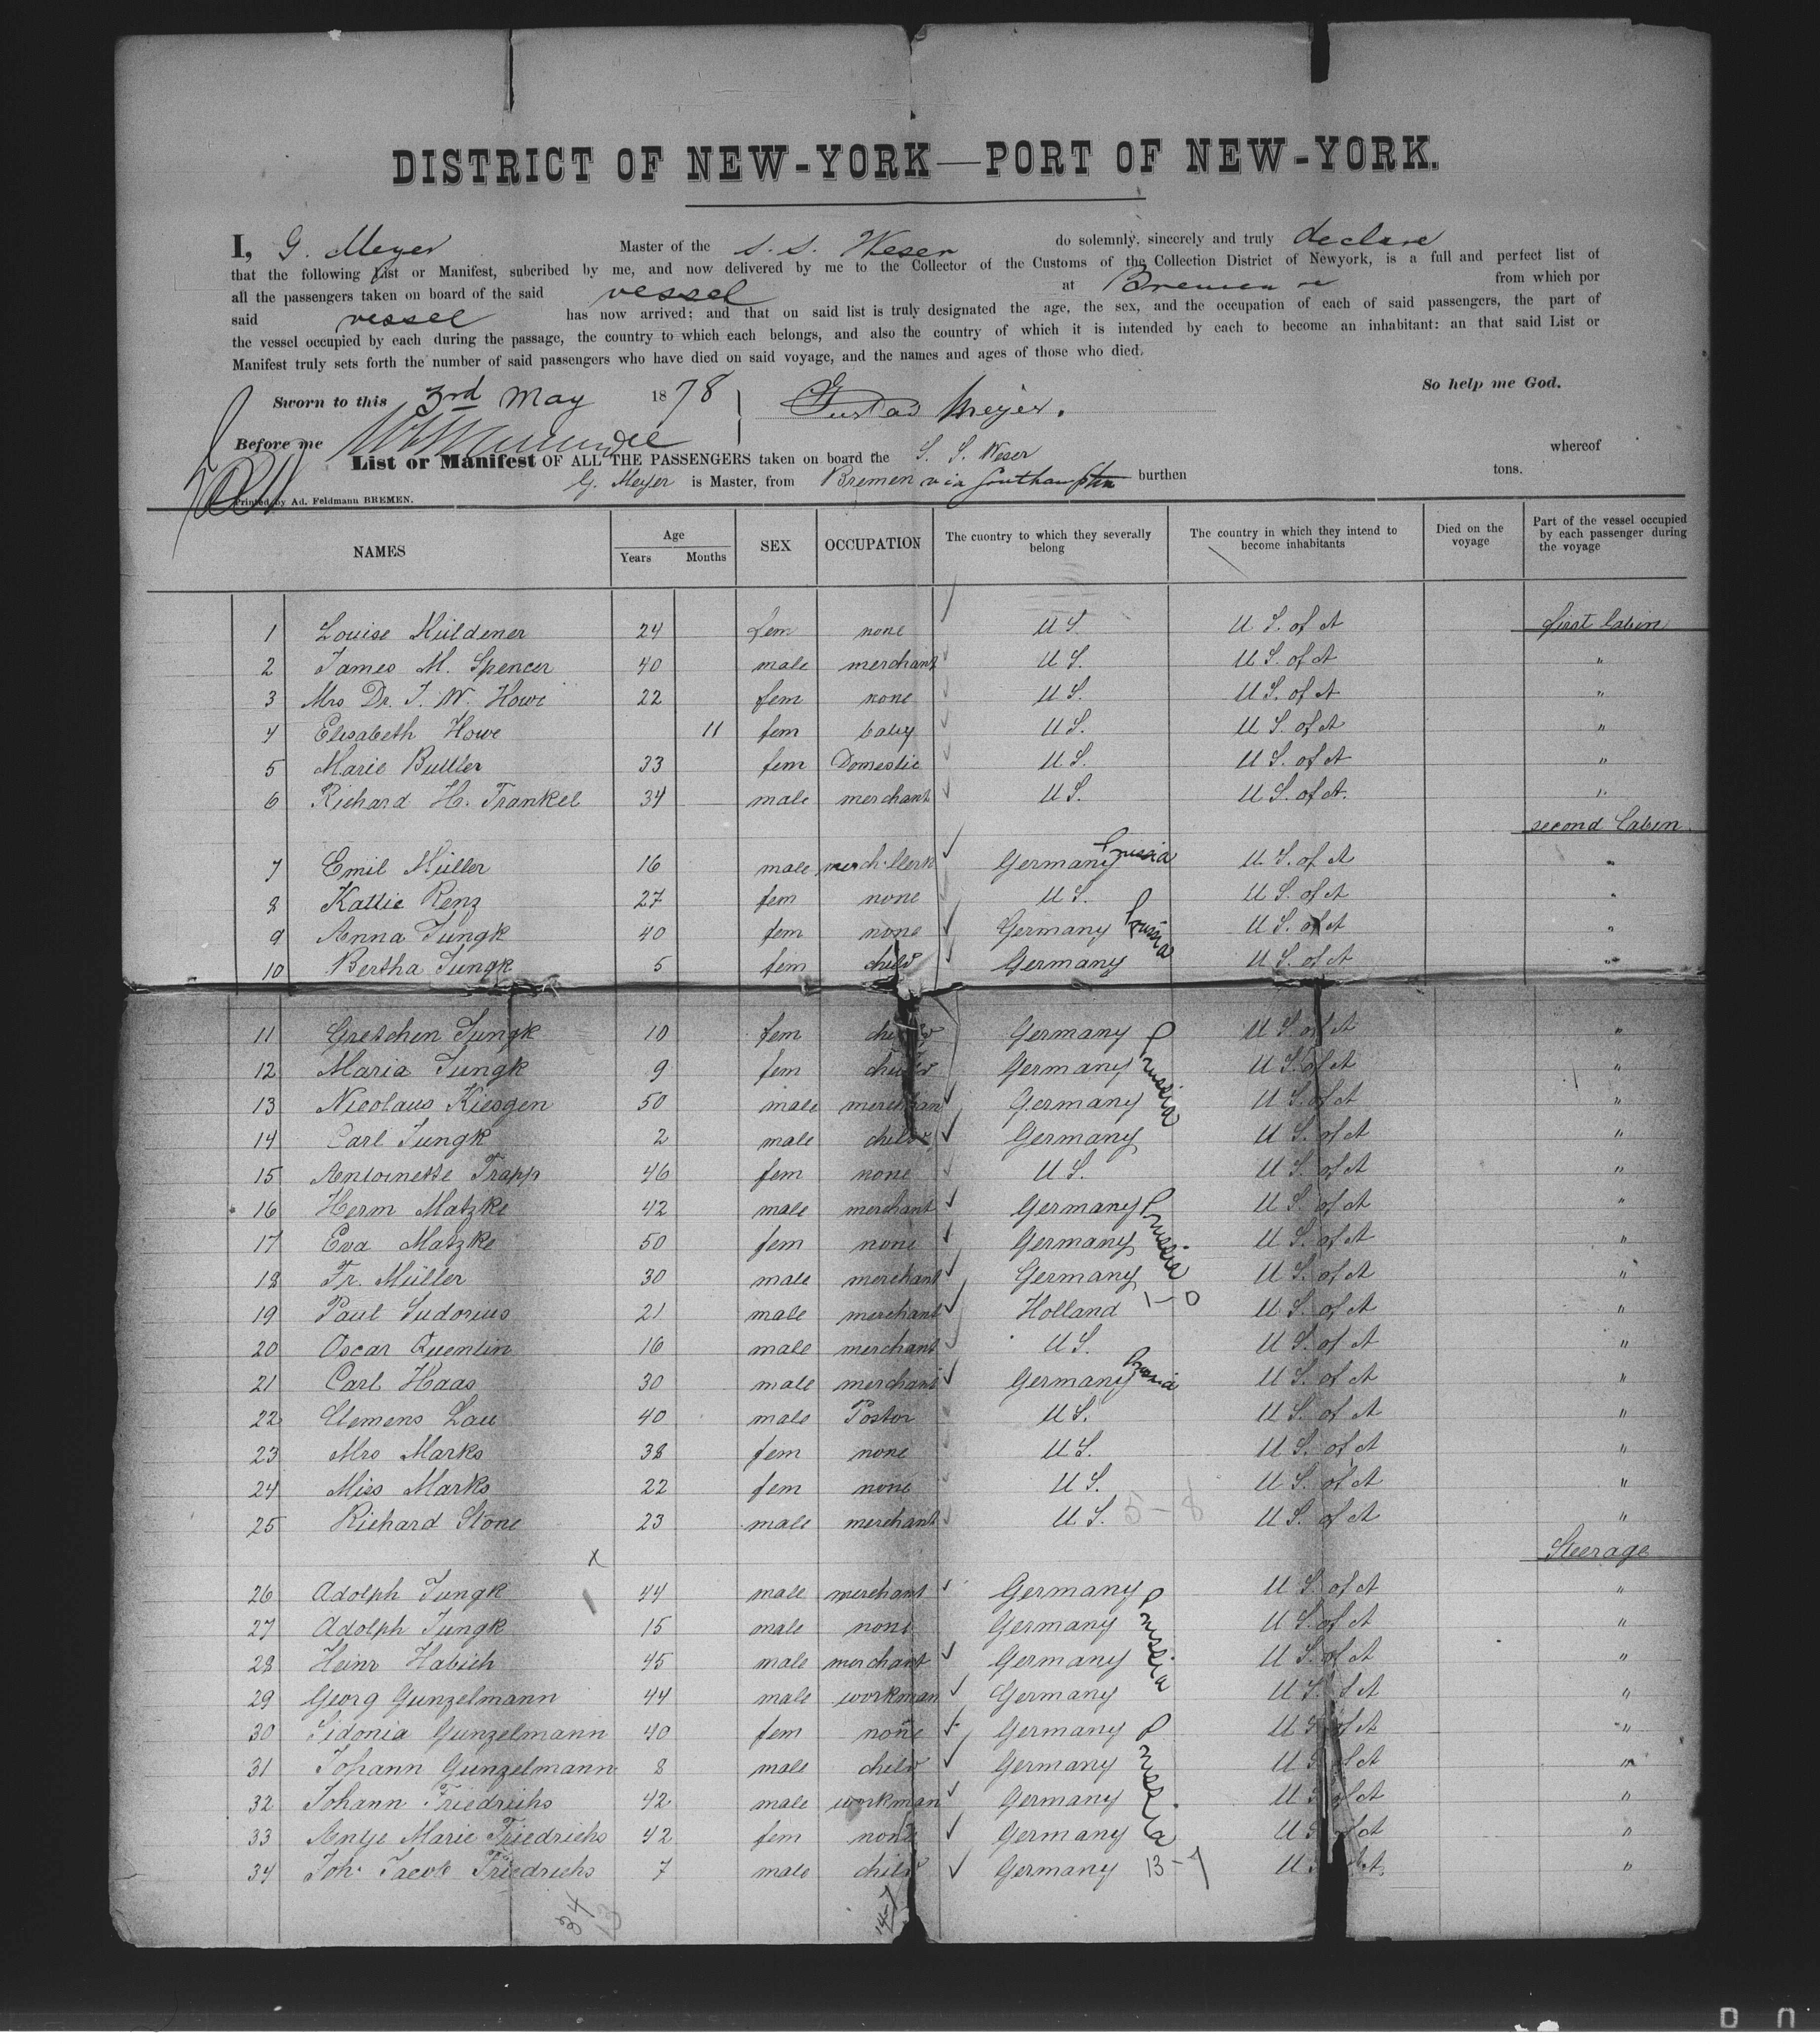 DISTRICT OF NEW-YORK—PORT OF NEW-YORK.
I, G. Meyer Master of the S. S. Weser do solemnly, sincerely and truly declare
that the following List or Manifest, subcribed by me, and now delivered by me to the Collector of the Customs of the Collection District of Newyork, is a full and perfect list of
all the passengers taken on board of the said vessel at Bremen from which por
said vessel has now arrived; and that on said list is truly designated the age, the sex, and the occupation of each of said passengers, the part of
the vessel occupied by each during the passage, the country to which each belongs, and also the country of which it is intended by each to become an inhabitant: an that said List or
Manifest truly sets forth the number of said passengers who have died on said voyage, and the names and ages of those who died.
So help me God.
Sworn to this 3rd May 1878 Gustav Meyer.
Before me
List or Manifest OF ALL THE PASSENGERS taken on board the S. S. Weser whereof
G. Meyer is Master, from Bremen via Southampton burthen tons.
Printed by Ad. Feldmann BREMEN.
NAMES Age Years Months SEX OCCUPATION The cuontry to which they severally belong The country in which they intend to become inhabitants Died on the voyage Part of the vessel occupied by each passenger during the voyage
1 Louise Küldener 24 fem none U S. U. S. of A first Cabin
2 James M. Spencer 40 male merchant U S. U S. of A "
3 Mrs Dr. J. W. Howe 22 fem none U S. U S. of A "
4 Elisabeth Howe 11 fem baby U S. U S. of A "
5 Marie Buttler 33 fem Domestic U S. U S. of A "
6 Richard H. Frankel 34 male merchant U S. U S. of A. "
second Cabin
7 Emil Müller 16 male merch. Clerk Germany Prussia U S. of A "
8 Kattie Renz 27 fem none U S. U S. of A "
9 Anna Jungk 40 fem none Germany Prussia U S. of A "
10 Bertha Jungk 5 fem child Germany U S. of A "
11 Gretchen Jungk 10 fem child Germany U S. of A "
12 Maria Jungk 9 fem child Germany Prussia U S. of A "
13 Nicolaus Kiesgen 50 male merchant Germany U S. of A "
14 Carl Jungk 2 male child Germany U S. of A "
15 Antoinette Trapp 46 fem none U S. U S. of A "
16 Herm Matzke 42 male merchant Germany Prussia U S. of A "
17 Eva Matzke 50 fem none Germany U S. of A "
18 Fr. Müller 30 male merchant Germany U S. of A "
19 Paul Sudorius 21 male merchant Holland 1-0 U S. of A "
20 Oscar Quentin 16 male merchant U S. U S. of A "
21 Carl Haas 30 male merchant Germany Prussia U S. of A "
22 Clemens Lau 40 male Pastor U S. U S. of A "
23 Mrs Marks 38 fem none U S. U S. of A "
24 Miss Marks 22 fem none U S. U S. of A "
25 Richard Stone 23 male merchant U S. 5-8 U S. of A "
x Steerage
26 Adolph Jungk 44 male merchant Germany U S. of A "
27 Adolph Jungk 15 male none Germany Prussia U S. of A "
28 Heinr Habich 45 male merchant Germany U S. of A "
29 Georg Gunzelmann 44 male workman Germany U S. of A "
30 Sidonia Gunzelmann 40 fem none Germany U S. of A "
31 Johann Gunzelmann 8 male child Germany Prussia U S. of A "
32 Johann Friedrichs 42 male workman Germany U S. of A "
33 Antje Marie Friedrichs 42 fem none Germany U S. of A "
34 Joh. Jacob Friedrichs 7 male child Germany 13-7 U S. of A. "
34
13
14-7